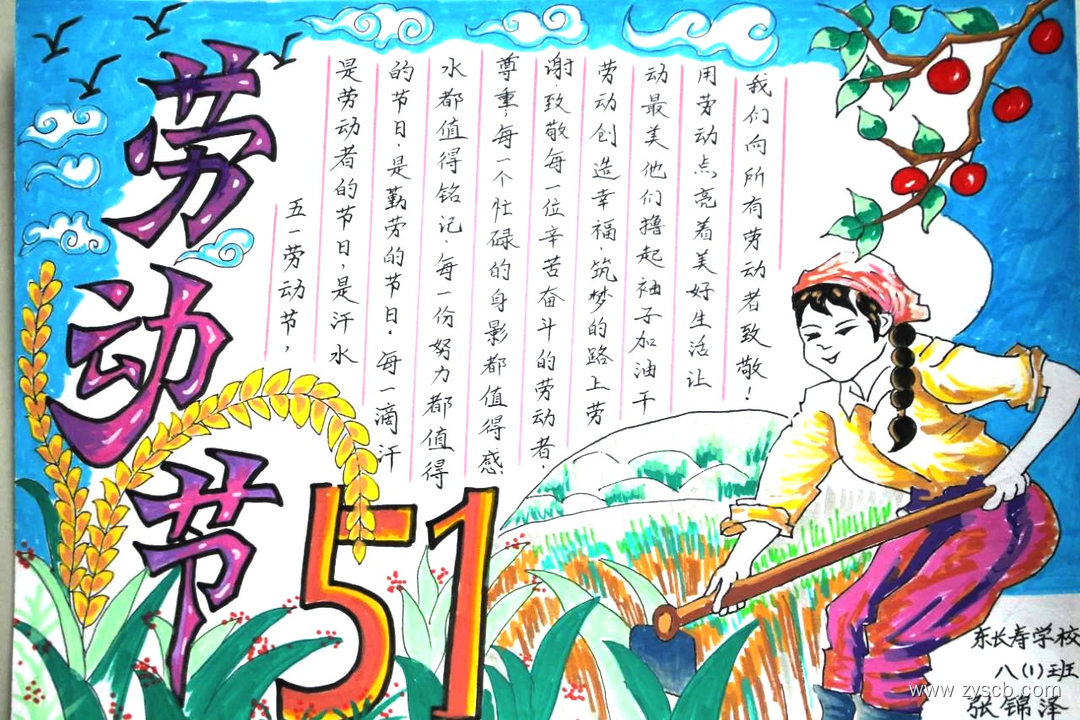 劳动节
五一劳动节，
是劳动者的节日，是汗水
的节日．是勤劳的节日．每一滴汗
水都值得铭记．每一份努力都值得
尊重，每一个忙碌的身影都值得感
谢．致敬每一位辛苦奋斗的劳动者．
劳动创造幸福筑梦的路上劳
动最美他们撸起袖子加油干
用劳动点亮着美好生活让
我们向所有劳动者致敬！
51
东长寿学校
八（1）班
张锦泽
www.zyscb.com